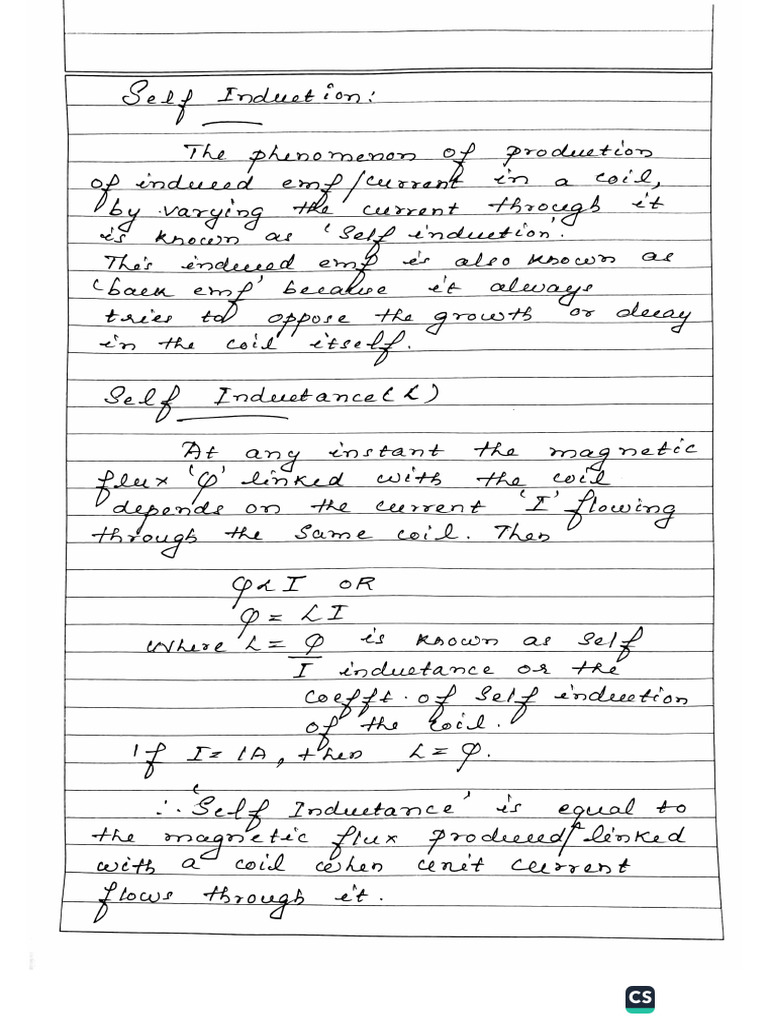 Self Induction:
The phenomenon of production
of induced emf/current in a coil,
by varying the current through it
is known as 'Self induction'.
This induced emf is also known as
'back emf' because it always
tries to oppose the growth or decay
in the coil itself.
Self Inductance(L)
At any instant the magnetic
flux 'φ' linked with the coil
depends on the current 'I' flowing
through the same coil. Then
φ ∝ I OR
φ = LI
Where L = φ/I is known as self
inductance or the
coefft. of self induction
of the coil.
If I = 1A, then L = φ.
∴ 'Self Inductance' is equal to
the magnetic flux produced/linked
with a coil when unit current
flows through it.
CS